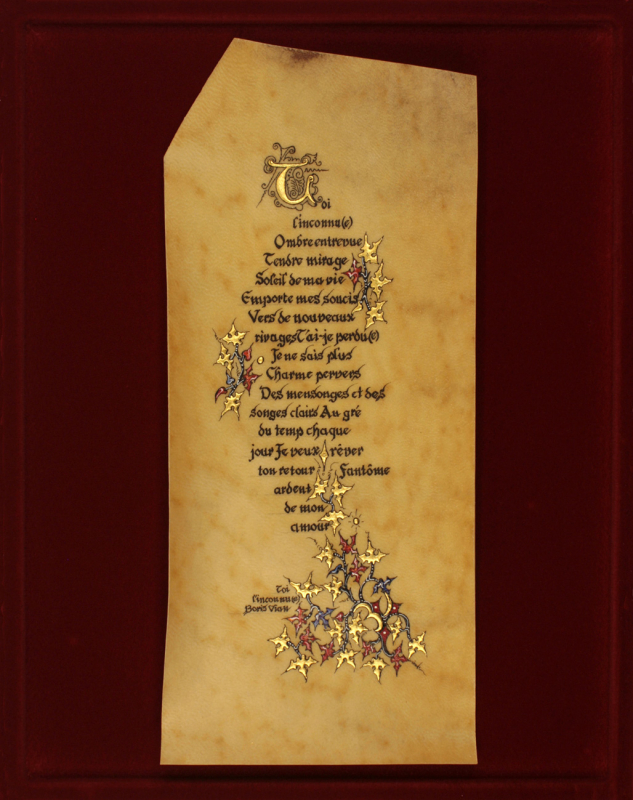 Toi
l'inconnu(e)
Ombre entrevue
Tendre mirage
Soleil de ma vie
Emporte mes soucis
Vers de nouveaux
rivages T'ai-je perdu(e)
Je ne sais plus
Charme pervers
Des mensonges et des
songes clairs Au gré
du temp chaque
jour Je veux rêver
ton retour Fantôme
ardent
de mon
amour
Toi
l'inconnu(e)
Boris Vian